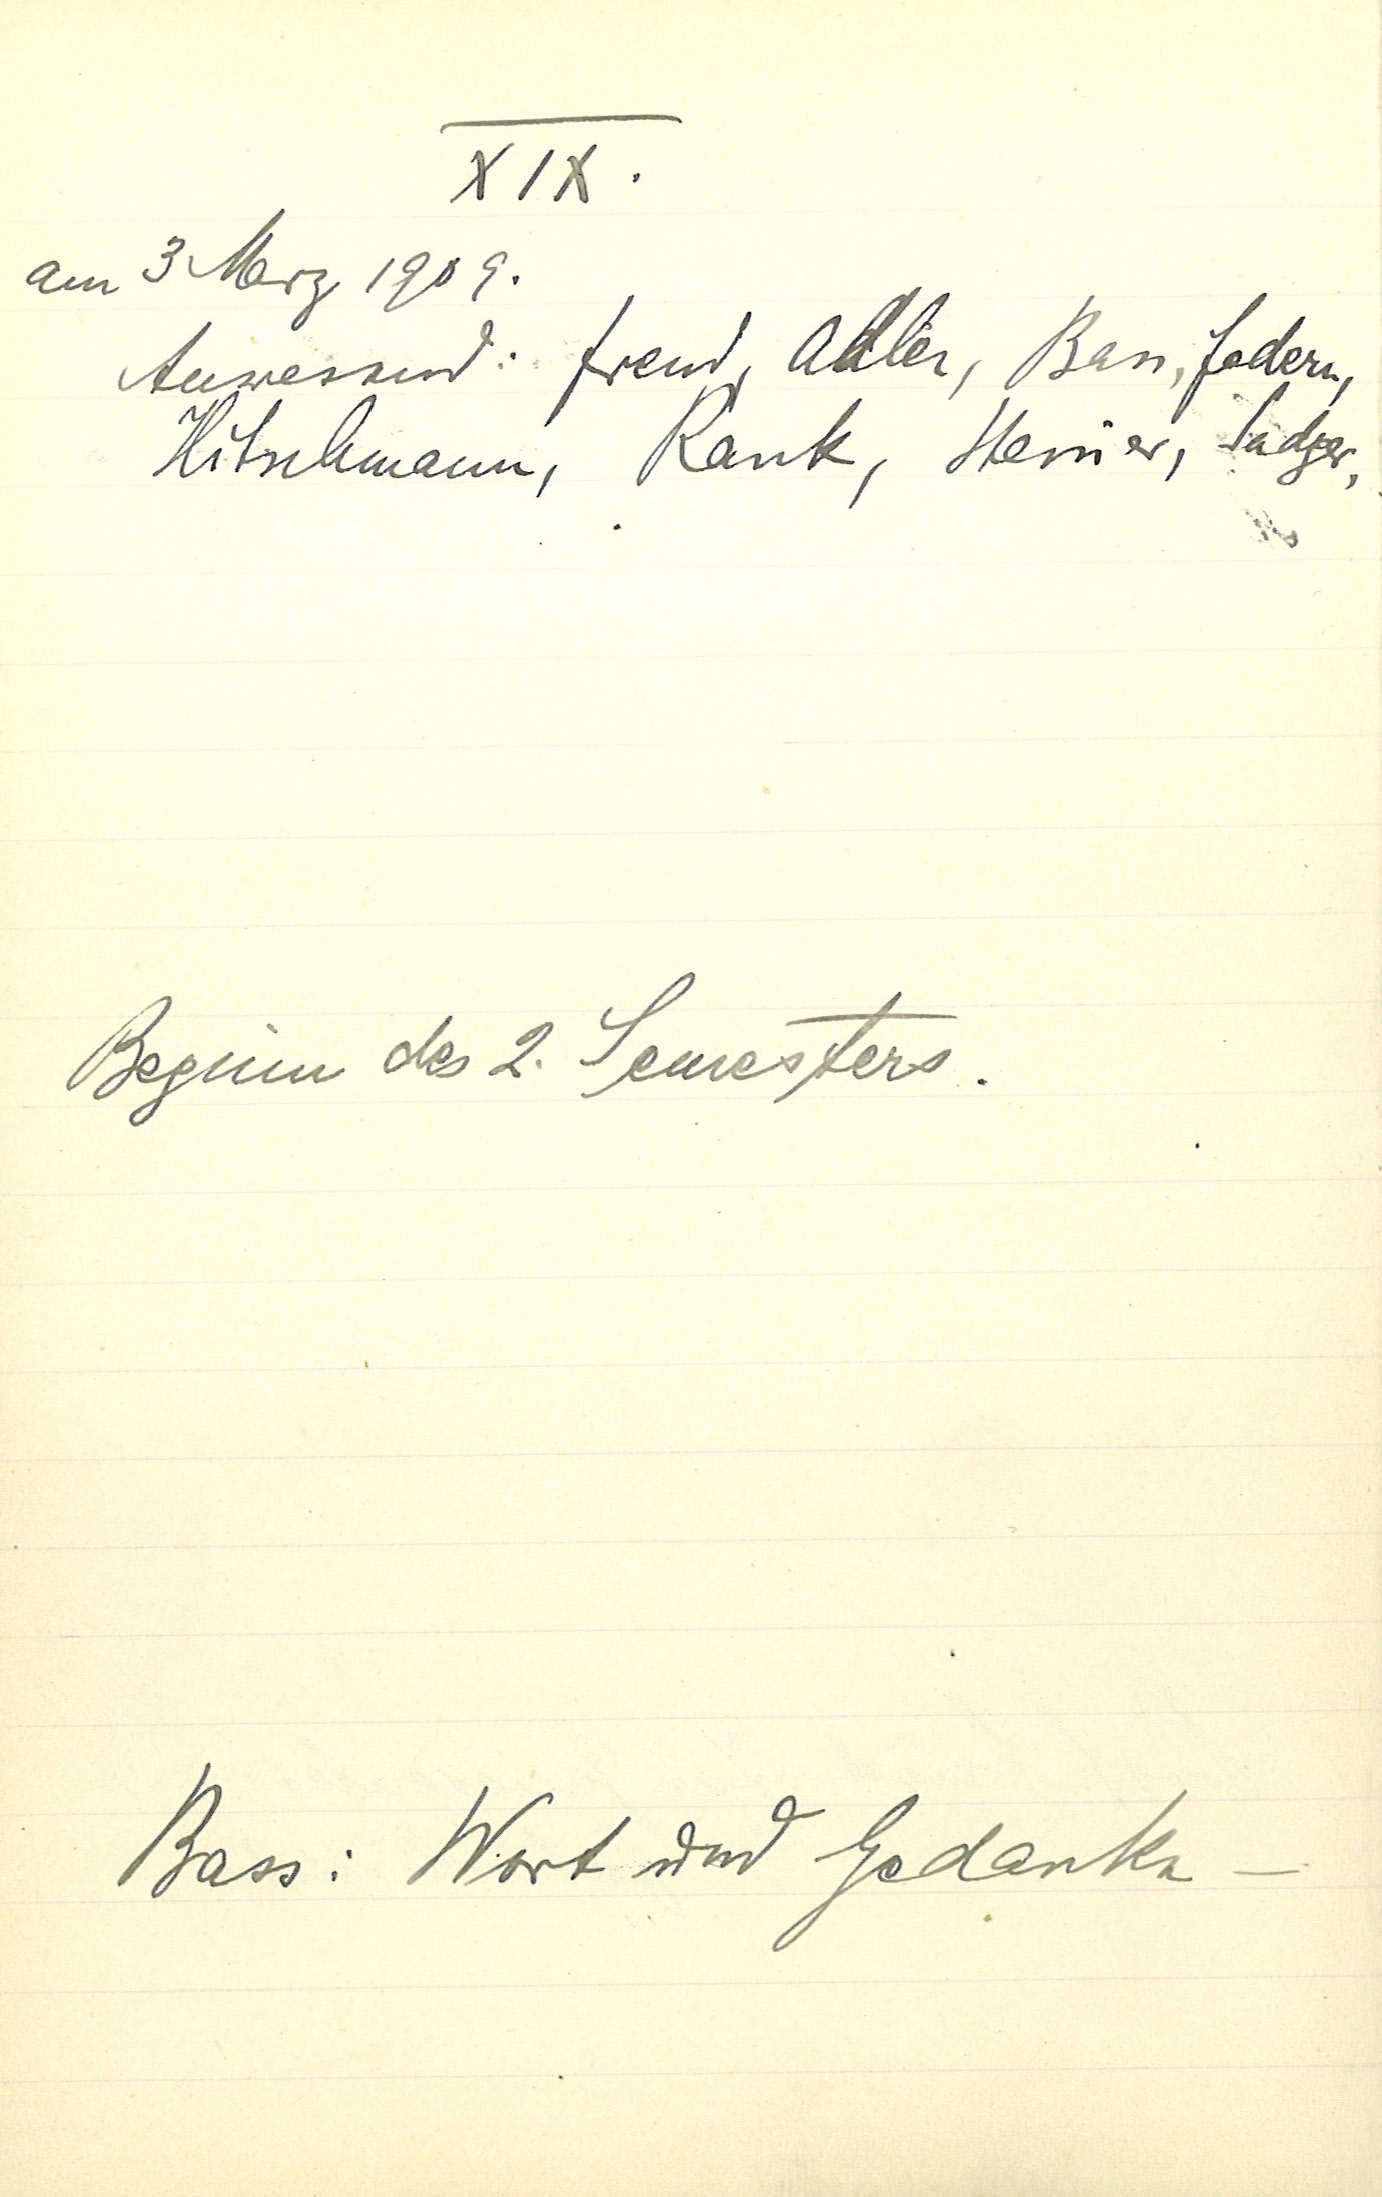 XIX.
am 3 März 1909.
Anwesend: Freud, Adler, Bass, Federn,
Hitschmann, Rank, Steiner, Sadger,
Beginn des 2. Semesters.
Bass: Wort und Gedanke –